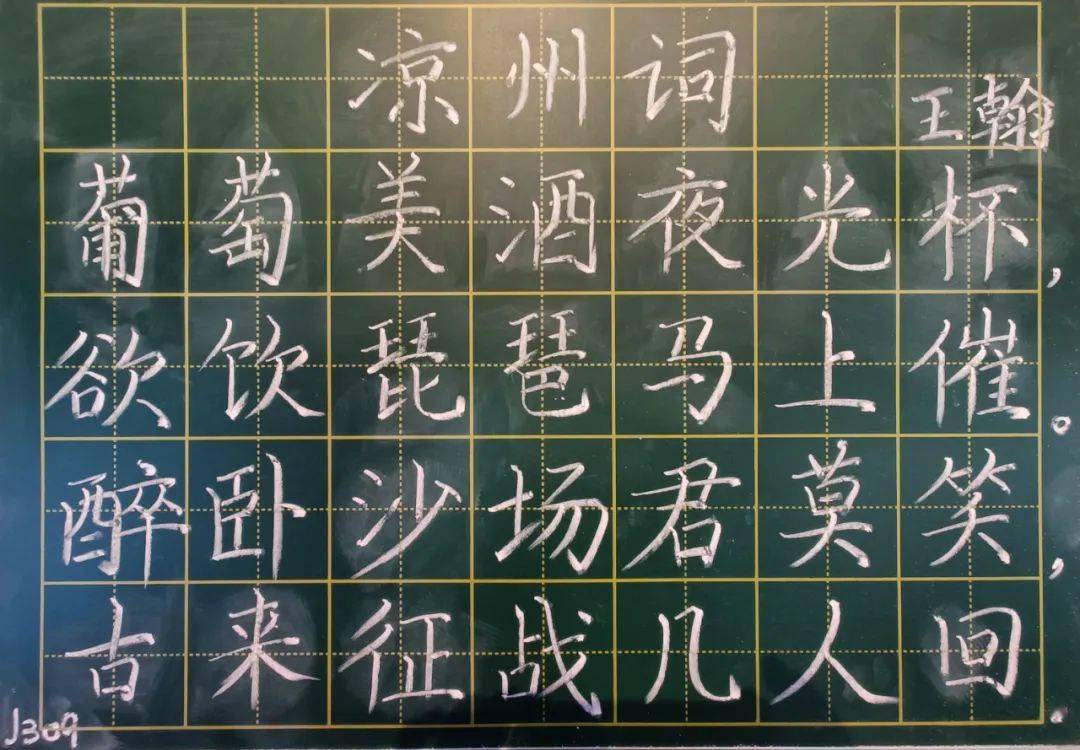 凉州词
王翰
葡萄美酒夜光杯，
欲饮琵琶马上催。
醉卧沙场君莫笑，
古来征战几人回.
J309